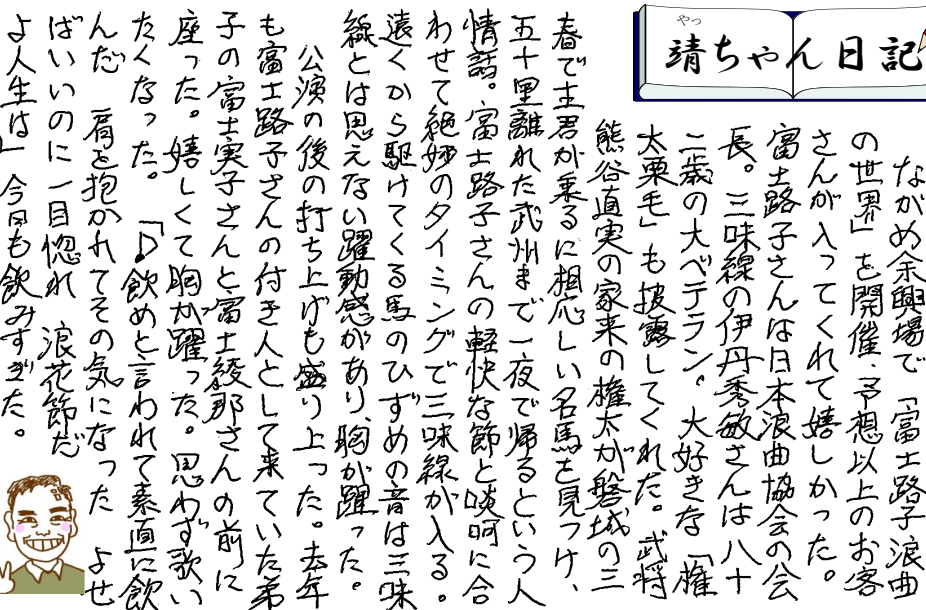 やっ
靖ちゃん日記
ながめ余興場で「富士路子浪曲
の世界」を開催。予想以上のお客
さんが入ってくれて嬉しかった。
富士路子さんは日本浪曲協会の会
長。三味線の伊丹秀敏さんは八十
二歳の大ベテラン。大好きな「権
太栗毛」も披露してくれた。武将
熊谷直実の家来の権太が磐城の三
春で主君が乗るに相応しい名馬を見つけ、
五十里離れた武州まで一夜で帰るという人
情話。富士路子さんの軽快な節と啖呵に合
わせて絶妙のタイミングで三味線が入る。
遠くから駆けてくる馬のひずめの音は三味
線とは思えない躍動感があり、胸が躍った。
公演の後の打ち上げも盛り上った。去年
も富士路子さんの付き人として来ていた弟
子の富士実子さんと富士綾那さんの前に
座った。嬉しくて胸が躍った。思わず歌い
たくなった。「♪飲めと言われて素直に飲
んだ 肩を抱かれてその気になった よせ
ばいいのに一目惚れ 浪花節だ
よ人生は」今日も飲みすぎた。